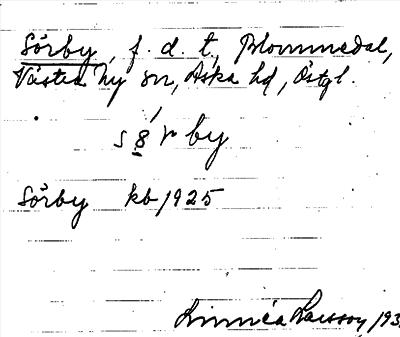 Sörby, f. d. t. Blommedal,
Västra Ny sn, Aska hd, Östgl.
s 8 r by
Sörby kb 1925
Linnéa Larsson 193